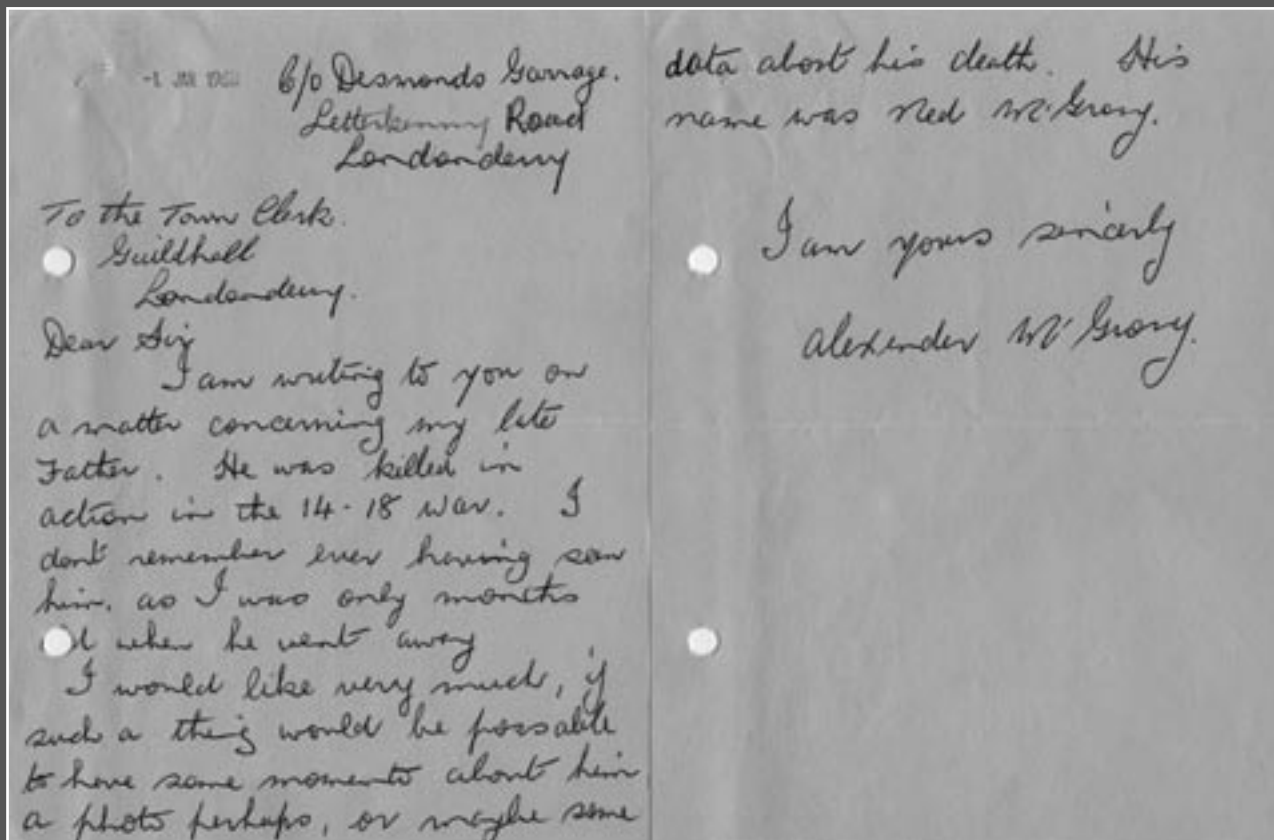 -1 JAN
C/o Desmonds Garrage.
Letterkenny Road
Londonderry
To the Town Clerk.
Guildhall
Londonderry.
Dear Sir
I am writing to you on
a matter concerning my late
Father. He was killed in
action in the 14-18 war. I
dont remember ever having seen
him, as I was only months
when he went away
I would like very much, if
such a thing would be possable
to have some momento about him
a photo perhaps, or maybe some
data about his death. His
name was Ned McGrory.
I am yours sincerly
Alexender McGrory.